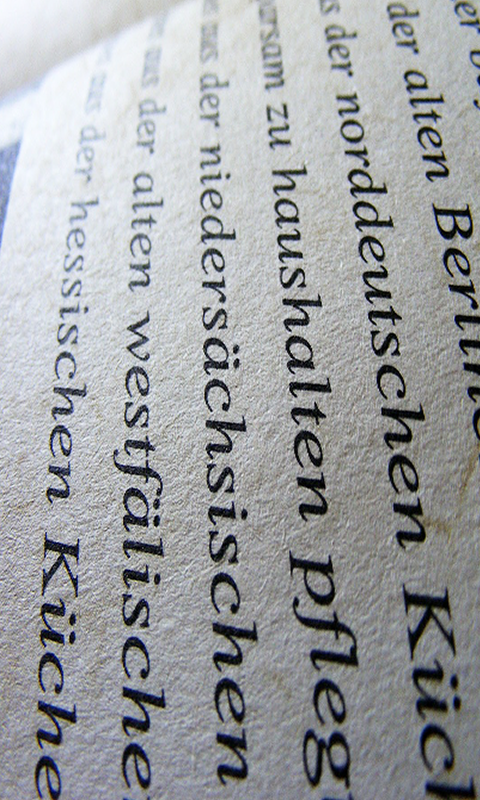 der alten Berline
der norddeutschen Küch
parsam zu haushalten pfleg
aus der niedersächsischen
aus der alten westfälische
aus der hessischen Küche